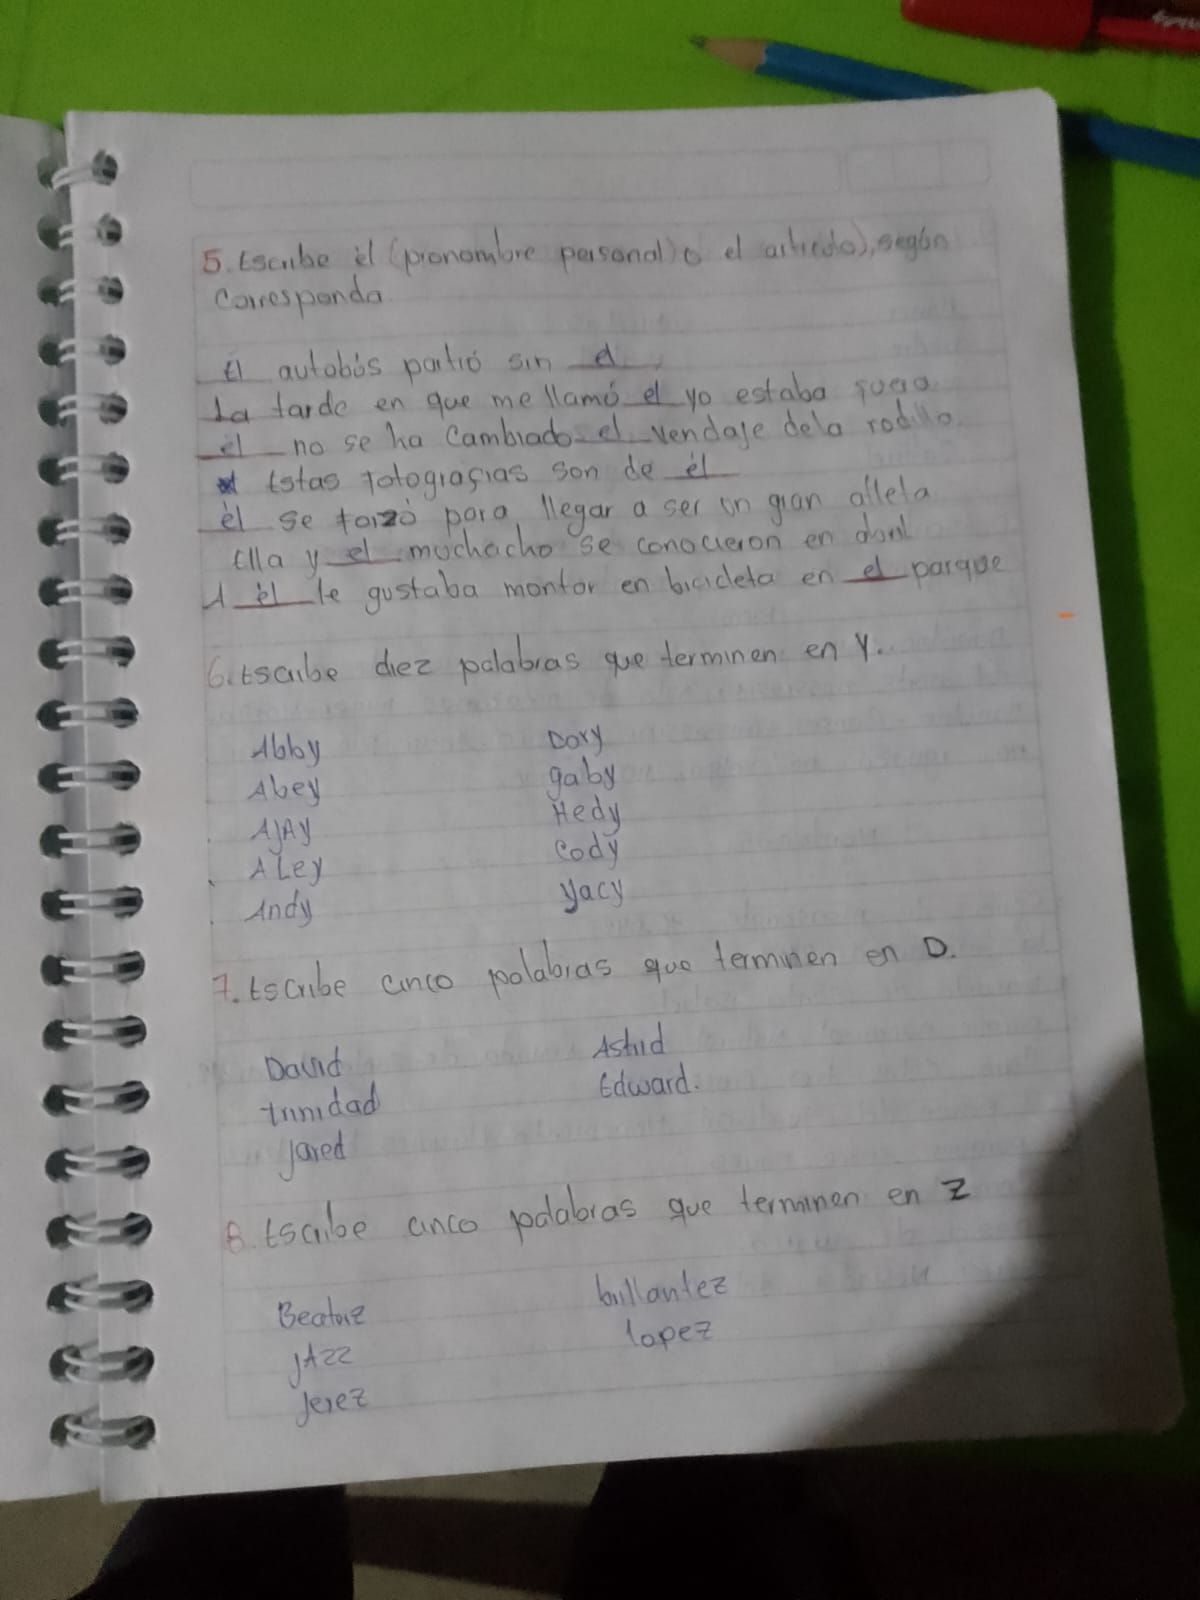 5. Escribe él (pronombre personal) o el artículo), según
Corresponda
El autobús partió sin el
La tarde en que me llamó el yo estaba fuera
él no se ha Cambiado el vendaje dela rodilla
Estas fotografias son de él
él se forzó para llegar a ser un gran atleta
Ella y el muchacho se conocieron en
A él le gustaba montar en bicicleta en el parque
6. Escribe diez palabras que terminen en Y.
Abby Dory
Abey gaby
AJAY Hedy
ALey Cody
Andy Yacy
7. Escribe cinco palabras que terminen en D.
David Astrid
trinidad Edward.
Jared
8. Escribe cinco palabras que terminen en Z
Beatriz brillantez
JAZZ lopez
Jerez